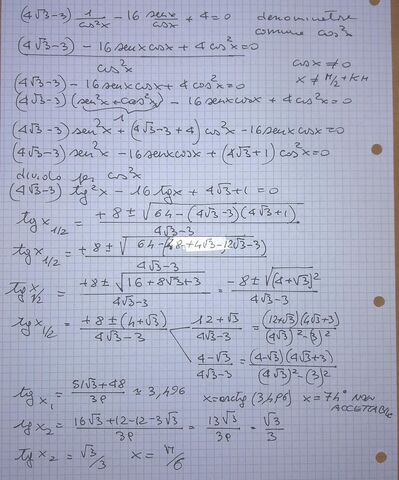 (4√3-3) 1/cos²x - 16 senx/cosx + 4 = 0 denominatore comune cos²x
(4√3-3) - 16 senx cosx + 4 cos²x = 0 / cos²x cosx ≠ 0
x ≠ π/2 + kπ
(4√3-3) - 16 senx cosx + 4 cos²x = 0
(4√3-3) (sen²x + cos²x) - 16 senx cosx + 4 cos²x = 0
1
(4√3-3) sen²x + (4√3-3+4) cos²x - 16 senx cosx = 0
(4√3-3) sen²x - 16 senx cosx + (4√3+1) cos²x = 0
divido per cos²x
(4√3-3) tg²x - 16 tgx + 4√3+1 = 0
tgx 1/2 = +8 ± √64-(4√3-3)(4√3+1) / 4√3-3
tgx 1/2 = +8 ± √64-(48+4√3-12√3-3) / 4√3-3
tgx 1/2 = +8 ± √16+8√3+3 / 4√3-3 = -8 ± √(4+√3)² / 4√3-3
tgx 1/2 = +8 ± (4+√3) / 4√3-3 12+√3 / 4√3-3 = (12+√3)(4√3+3) / (4√3)²-(3)²
4-√3 / 4√3-3 = (4-√3)(4√3+3) / (4√3)²-(3)²
tgx₁ = 51√3+48 / 39 ≅ 3,496 x = arctg (3,496) x = 74° NON ACCETTABILE
tgx₂ = 16√3+12-12-3√3 / 39 = 13√3 / 39 = √3 / 3
tgx₂ = √3/3 x = π/6